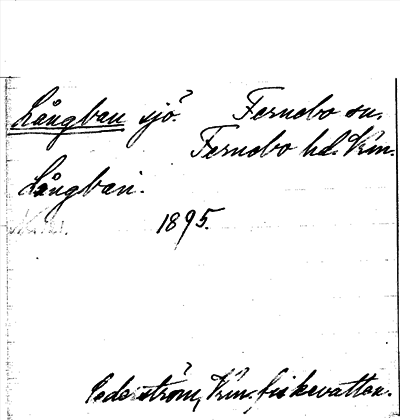 Långban sjö? Fernebo sn.
Fernebo hd. Vrm.
Långban.
1895.
Cederström, Vrm. fiskevatten.